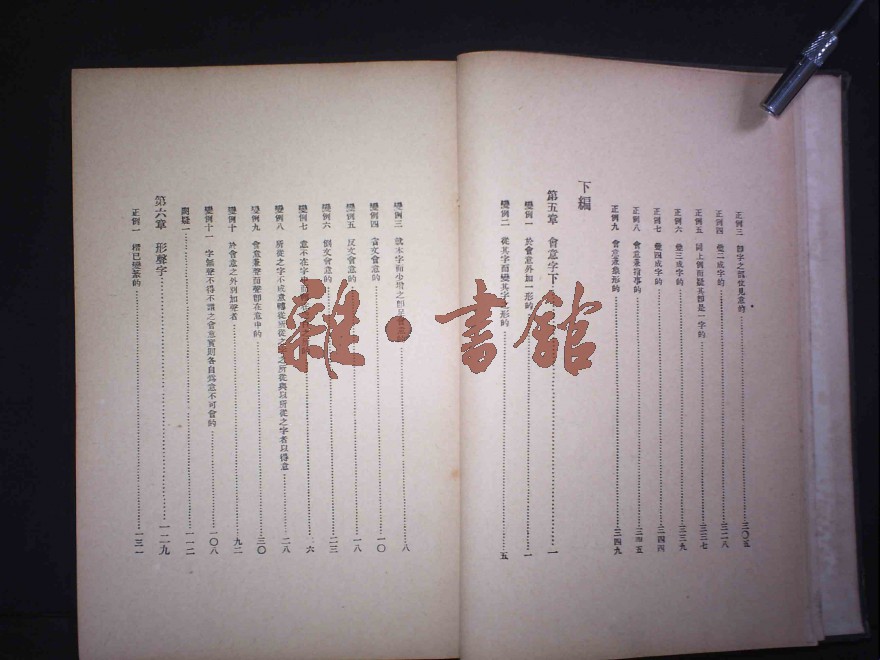 正例三 部字之部位見意的 三〇五
正例四 疊二成字的 三二八
正例五 同上側而疑其即是一字的 三三七
正例六 疊三成字的 三三九
正例七 疊四成字的 三四四
正例八 會意兼指事的 三四五
正例九 會意兼象形的 三四九
下編
第五章 會意字下 一
變例一 於會意外加一形的 一
變例二 從其字而變其字之形的 五
變例三 就本字而少增之 八
變例四 省文會意的 一〇
變例五 反文會意的 一八
變例六 倒文會意的 二三
變例七 意不在字中 六
變例八 所從之字不成意轉從所從之 之所從與以所從之字者以得意 二八
變例九 會意兼聲而聲即在意中的 三〇
變例十 於會意之外別加聲者 九二
變例十一 字無聲不得不謂之會意實則各自爲意不可會的 一〇八
闕疑一 一一二
第六章 形聲字 一二九
正例一 楷已變篆的 一三一
雜·書館